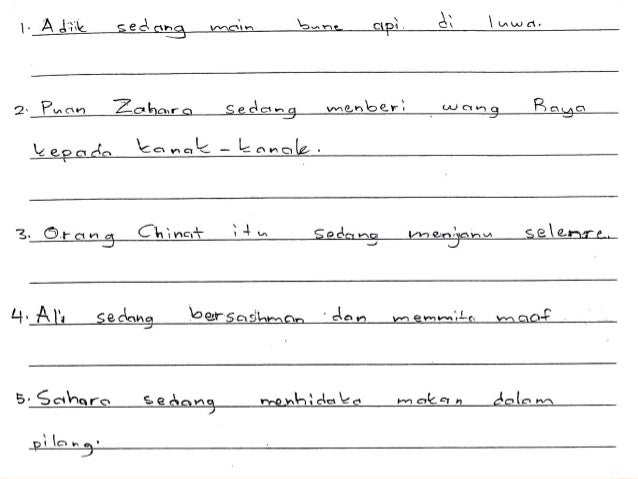 1. Adiik sedang main bune api. di luwa.
2. Puan Zahara sedang menberi wang Raya
kepada kanak-kanak.
3. Orang Chinat itu sedang menjanu selenre.
4. Ali sedang bersashman dan memmita maaf
5. Sahara sedang menhidaka makan dalam
pilang.